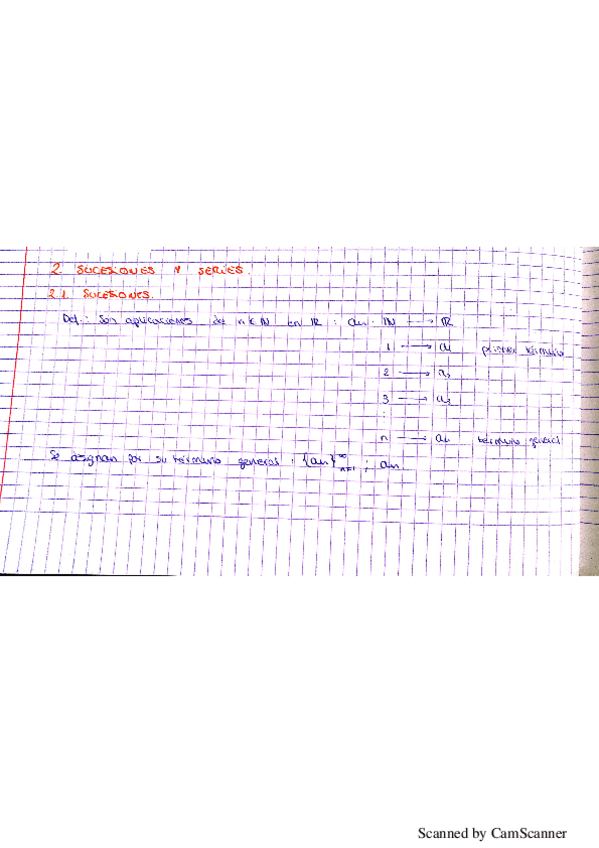 2. SUCESIONES Y SERIES.
2.1. SUCESIONES.
Def.: Son aplicaciones de n ∈ IN en IR : an: IN ⟶ IR
1 ⟶ a1 primer término
2 ⟶ a2
3 ⟶ a3
:
n ⟶ an término general
Se asignan por su término general : {an}∞n=1 ; an.
Scanned by CamScanner